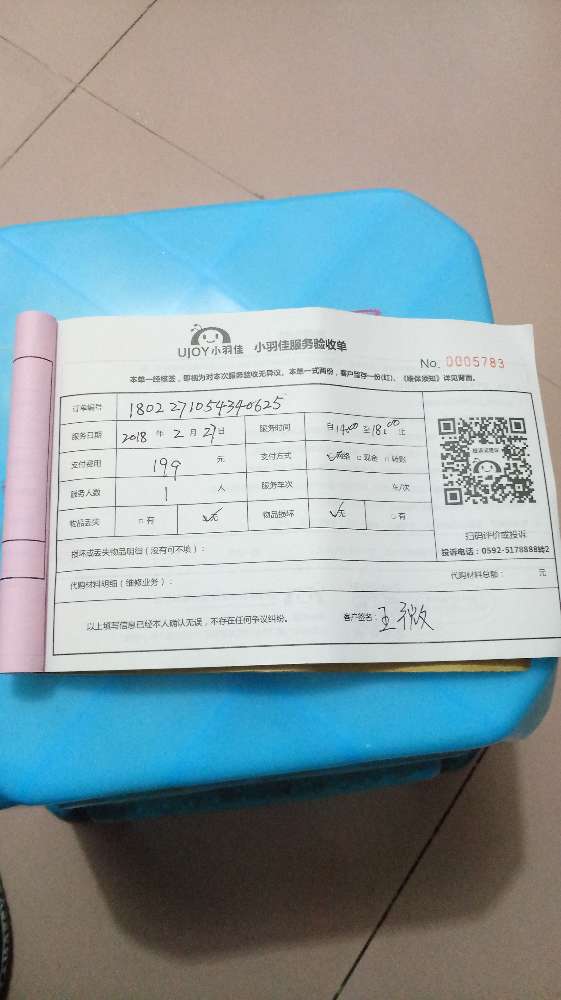 UJOY小羽佳 小羽佳服务验收单
No. 0005783
本单一经核签，即视为对本次服务验收无异议。本单一式两份，客户留存一份(红)，《维保须知》详见背面。
订单编号 1802271054340625
服务日期 2018 年 2 月 27 日 服务时间 自 14:00 至 18:00 止
支付费用 199 元 支付方式 ☑网络 □现金 □转账
服务人数 1 人 服务车次 车/次
物品丢失 □有 ☑无 物品损坏 ☑无 □有
扫码评价或投诉
投诉电话：0592-5178888转2
损坏或丢失物品明细（没有可不填）：
代购材料明细（维修业务）： 代购材料总额： 元
以上填写信息已经本人确认无误，不存在任何争议纠纷。 客户签名：王微